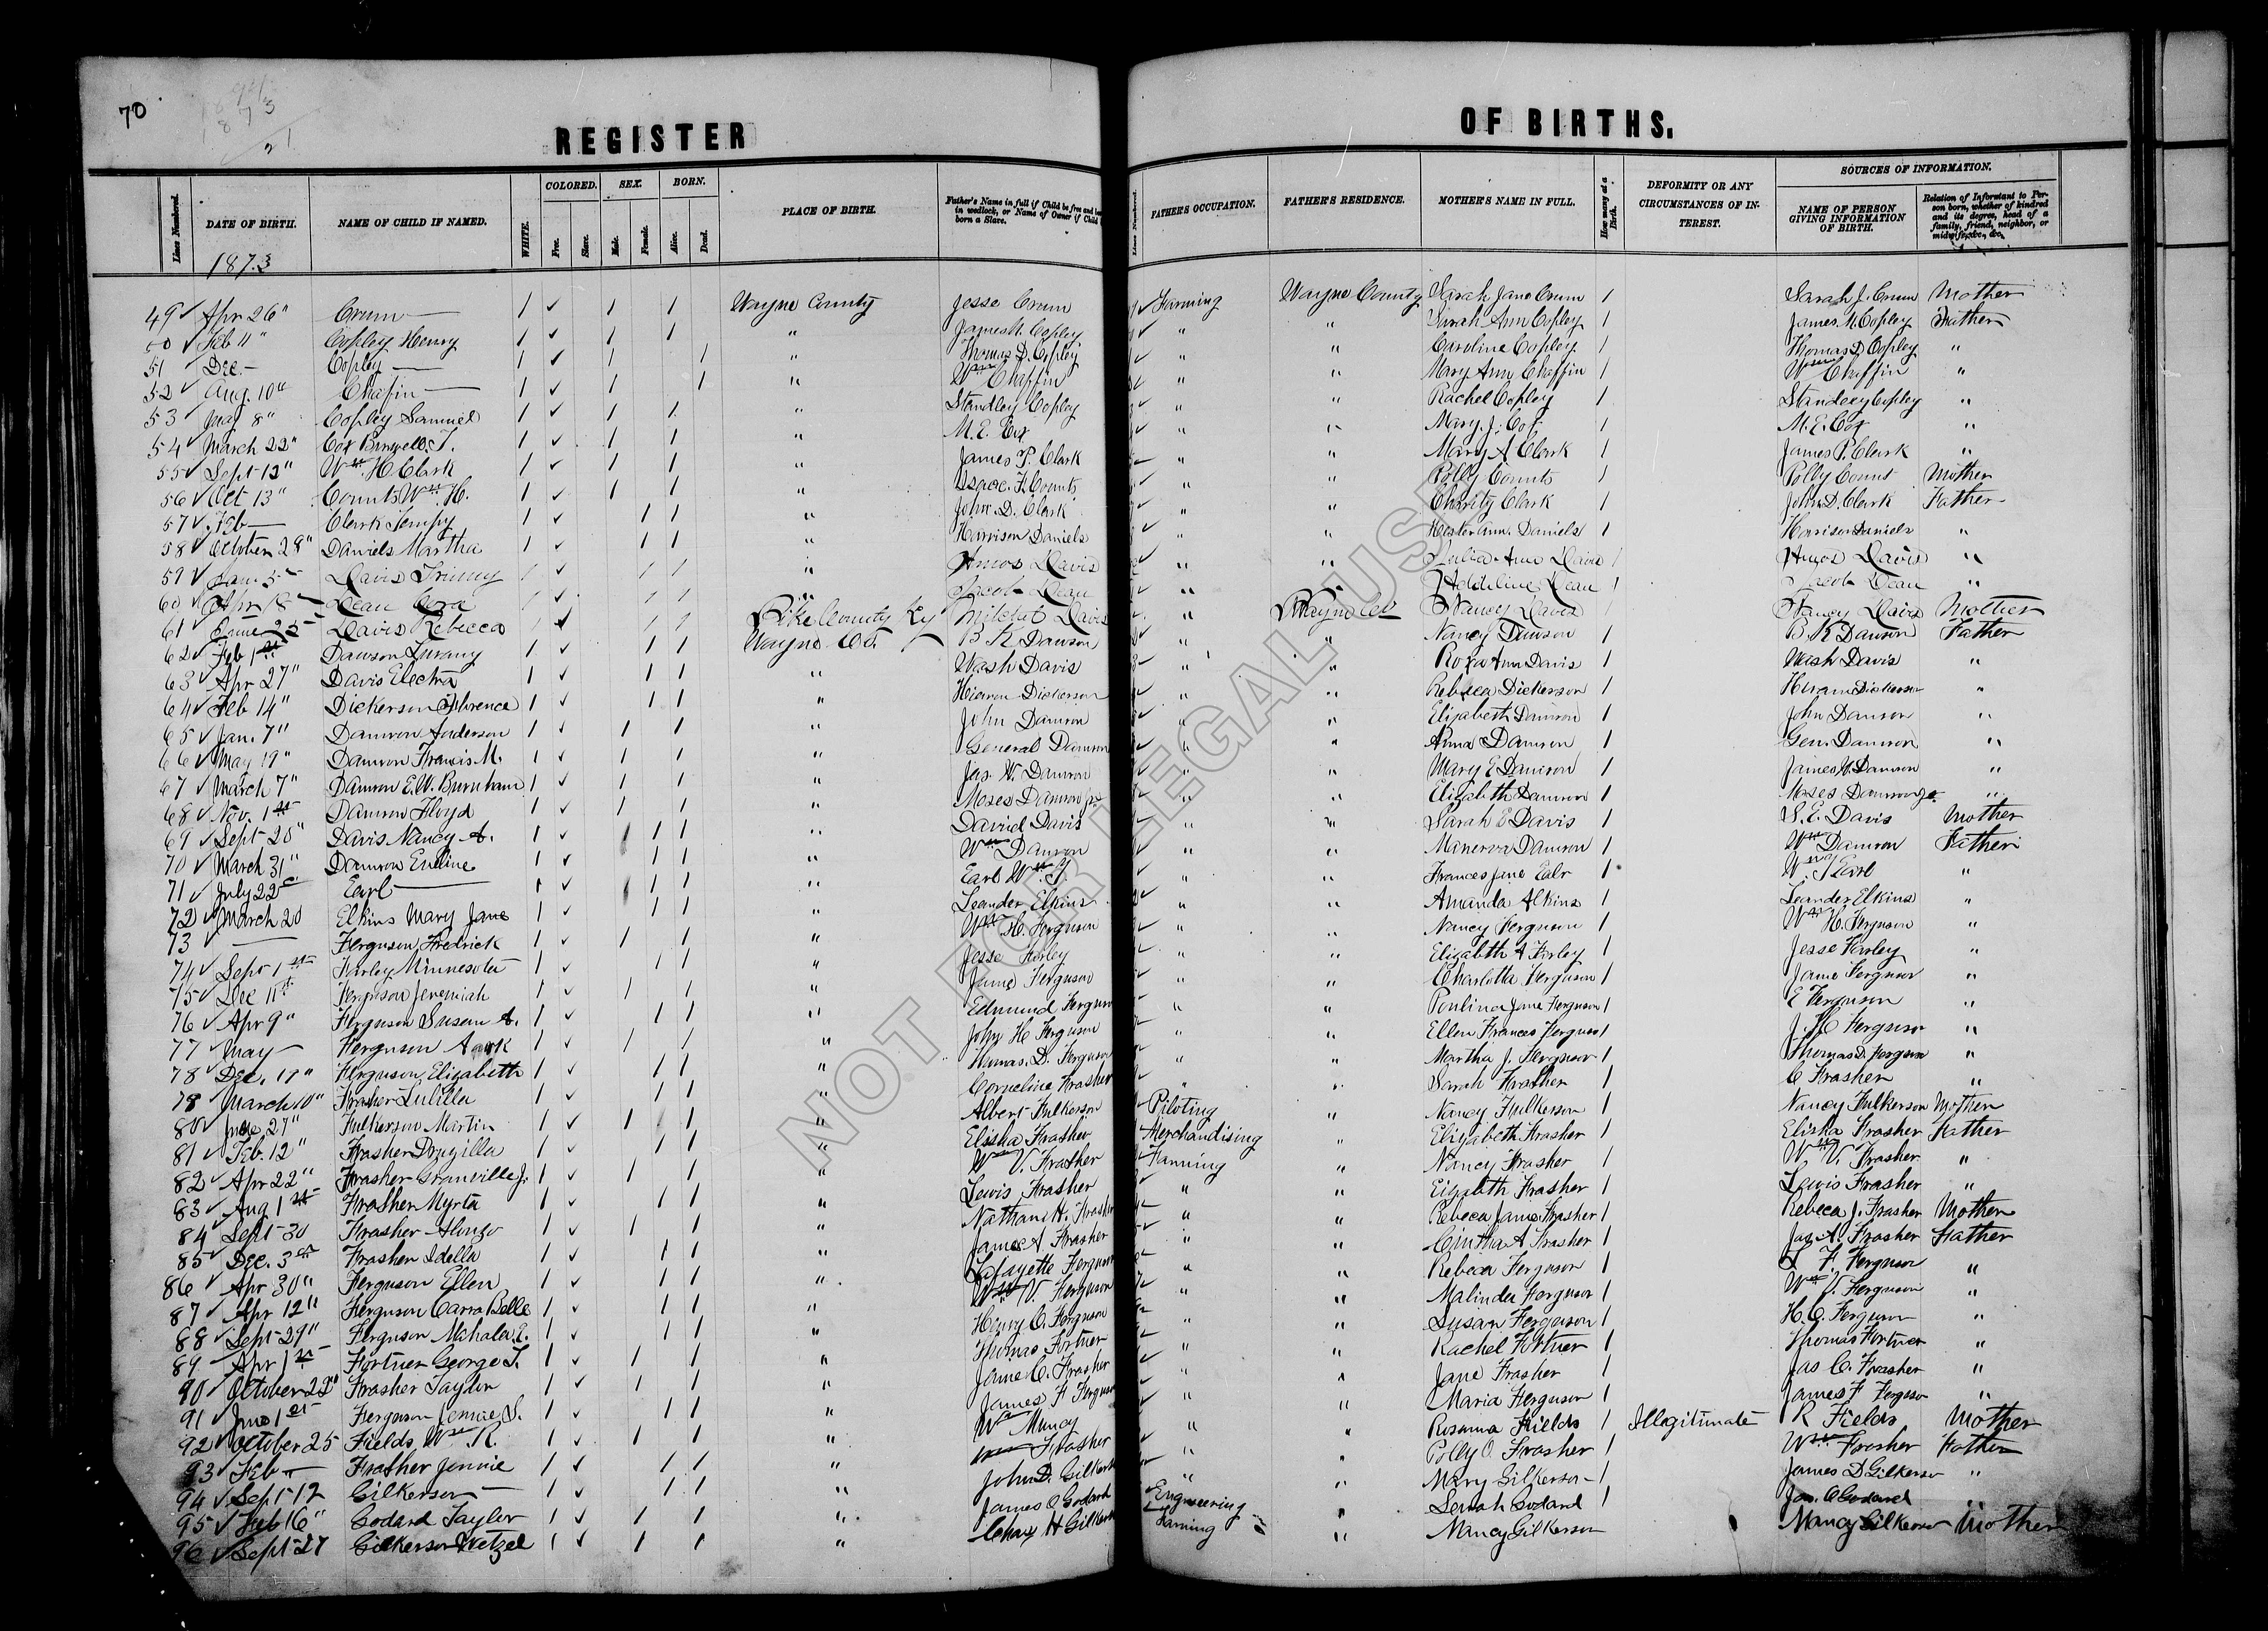 70
1873
REGISTER OF BIRTHS.
Lines Numbered. DATE OF BIRTH. NAME OF CHILD IF NAMED. WHITE. COLORED. Free. Slave. SEX. Male. Female. BORN. Alive. Dead. PLACE OF BIRTH. Father's Name in full if Child be free and born in wedlock, or Name of Owner if Child born a Slave. Lines Numbered. FATHER'S OCCUPATION. FATHER'S RESIDENCE. MOTHER'S NAME IN FULL. How many at a Birth. DEFORMITY OR ANY CIRCUMSTANCES OF INTEREST. SOURCES OF INFORMATION. NAME OF PERSON GIVING INFORMATION OF BIRTH. Relation of Informant to Person born, whether of kindred and its degree, head of a family, friend, neighbor, or midwife, &c., &c.
1873
49 ✓ Apr 26" Crum — 1 ✓ 1 1 Wayne County Jesse Crum ✓ Farming Wayne County Sarah Jane Crum 1 Sarah J. Crum Mother
50 ✓ Feb 11" Copley Henry 1 ✓ 1 1 " James M. Copley ✓ " " Sarah Ann Copley 1 James M. Copley Father
51 Dec — Copley — 1 ✓ 1 1 " Thomas D. Copley ✓ " " Caroline Copley 1 Thomas D. Copley "
52 ✓ Aug. 10" Chafin — 1 ✓ 1 1 " Wm Chaffin ✓ " " Mary Ann Chaffin 1 Wm Chaffin "
53 ✓ May 8" Copley Samuel 1 ✓ 1 1 " Standley Copley ✓ " " Rachel Copley 1 Standley Copley "
54 ✓ March 22" Cox Burwell T. 1 ✓ 1 1 " M. E. Cox ✓ " " Mary. J. Cox 1 M. E. Cox "
55 ✓ Sept 12" Wm H Clark 1 ✓ 1 1 " James P. Clark ✓ " " Mary A Clark 1 James P. Clark "
56 ✓ Oct 13" Counts Wm H. 1 ✓ 1 1 " Isaac. F. Counts ✓ " " Polly Counts 1 Polly Count Mother
57 ✓ Feb — Clark 1 ✓ 1 1 " John. D. Clark ✓ " " Charity Clark 1 John D. Clark Father
58 ✓ October 28" Daniels Martha 1 ✓ 1 1 " Harrison Daniels ✓ " " Hester Ann. Daniels 1 Harrison Daniels "
59 ✓ Jan. 5 Davis 1 ✓ 1 1 " Amos Davis ✓ " " Julia Ann Davis 1 Amos Davis "
60 ✓ Apr 18 Dean Cora 1 ✓ 1 1 " Jacob Dean ✓ " " Addeline Dean 1 Jacob Dean "
61 ✓ June 25 Davis Rebecca 1 ✓ 1 1 Pike County Ky Davis ✓ " Wayne Co Nancy Davis 1 Nancy Davis Mother
62 ✓ Feb 1st Dawson 1 ✓ 1 1 Wayne Co. B. K Dawson ✓ " " Nancy Dawson 1 B. K Dawson Father
63 ✓ Apr 27" Davis Electra 1 ✓ 1 1 " Wash Davis ✓ " " Roxa Ann Davis 1 Wash Davis "
64 ✓ Feb 14" Dickerson Florence 1 ✓ 1 1 " Hiram Dickerson ✓ " " Rebecca Dickerson 1 Hiram Dickerson "
65 ✓ Jan. 7" Damron Anderson 1 ✓ 1 1 " John Damron ✓ " " Elizabeth Damron 1 John Damron "
66 ✓ May 19" Damron Francis M. 1 ✓ 1 1 " General Damron ✓ " " Anna Damron 1 Gen. Damron "
67 ✓ March 7" Damron E. W. Burnham 1 ✓ 1 1 " Jas. W. Damron ✓ " " Mary E Damron 1 James W. Damron "
68 ✓ Nov. 1st Damron Floyd 1 ✓ 1 1 " Moses Damron jr ✓ " " Elizabeth Damron 1 Moses Damron jr. "
69 ✓ Sept 20" Davis Nancy A. 1 ✓ 1 1 " David Davis ✓ " " Sarah E Davis 1 S. E. Davis Mother
70 ✓ March 31" Damron Eveline 1 ✓ 1 1 " Wm Damron ✓ " " Manerva Damron 1 Wm Damron Father
71 ✓ July 22 Earl — 1 ✓ 1 1 " Earl Wm T. ✓ " " Frances Jane Ealr 1 Wm T Earl "
72 ✓ March 20 Elkins Mary Jane 1 ✓ 1 1 " Leander Elkins ✓ " " Amanda Alkins 1 Leander Elkins "
73 ✓ — Ferguson Fredrick 1 ✓ 1 1 " Wm H. Ferguson ✓ " " Nancy Ferguson 1 Wm H. Ferguson "
74 ✓ Sept 1st Farley Minnesota 1 ✓ 1 1 " Jesse Farley ✓ " " Elizabeth A Farley 1 Jesse Farley "
75 ✓ Dec 11th Ferguson Jeremiah 1 ✓ 1 1 " Jame Ferguson ✓ " " Charlotta Ferguson 1 Jame Ferguson "
76 ✓ Apr 9" Ferguson Susan A. 1 ✓ 1 1 " Edmund Ferguson ✓ " " Poulina Jane Ferguson 1 E Ferguson "
77 ✓ May — Ferguson 1 ✓ 1 1 " John H Ferguson ✓ " " Ellen Frances Ferguson 1 J. H Ferguson "
78 ✓ Dec. 19" Ferguson, Elizabeth 1 ✓ 1 1 " Thomas. D. Ferguson ✓ " " Martha J. Ferguson 1 Thomas D. Ferguson "
78 ✓ March 10" Frasher Lulilla 1 ✓ 1 1 " Corneline Frasher ✓ " " Sarah Frasher 1 C Frasher "
80 ✓ June 27" Fulkerson Martin 1 ✓ 1 1 " Albert Fulkerson ✓ Piloting " Nancy Fulkerson 1 Nancy Fulkerson Mother
81 ✓ Feb. 12" Frasher Druzilla 1 ✓ 1 1 " Elisha Frasher ✓ Merchandising " Elizabeth Frasher 1 Elisha Frasher Father
82 ✓ Apr 22" Frasher Granville J. 1 ✓ 1 1 " Wm V. Frasher ✓ Farming " Nancy Frasher 1 Wm V. Frasher "
83 ✓ Aug 1st Frasher Myrta 1 ✓ 1 1 " Lewis Frasher ✓ " " Elizabeth Frasher 1 Lewis Frasher "
84 ✓ Sept 30 Frasher Alonzo 1 ✓ 1 1 " Nathan H. Frasher ✓ " " Rebeca Jame Frasher 1 Rebeca J. Frasher Mother
85 ✓ Dec. 3 Frasher Idella 1 ✓ 1 1 " James A Frasher ✓ " " Cintha A Frasher 1 Jas A. Frasher Father
86 ✓ Apr 30" Ferguson Ellen 1 ✓ 1 1 " Lafayette Ferguson ✓ " " Rebeca Ferguson 1 L F. Ferguson "
87 ✓ Apr 12" Ferguson Carra Belle 1 ✓ 1 1 " Wm V. Ferguson ✓ " " Malinda Ferguson 1 Wm V. Ferguson "
88 ✓ Sept 29" Ferguson Mahala E. 1 ✓ 1 1 " Henry C. Ferguson ✓ " " Susan Ferguson 1 H. C. Ferguson "
89 ✓ Apr 1st Fortner George T. 1 ✓ 1 1 " Thomas Fortner ✓ " " Rachel Fortner 1 Thomas Fortner "
90 ✓ October 29" Frasher Taylor 1 ✓ 1 1 " Jame C. Frasher ✓ " " Jane Frasher 1 Jas C. Frasher "
91 ✓ June 1st Ferguson Jennie S. 1 ✓ 1 1 " James F Ferguson ✓ " " Maria Ferguson 1 James F Ferguson "
92 ✓ October 25 Fields, Wm R. 1 ✓ 1 1 " Wm Muncy " " Rosanna Fields 1 Illegitimate R Fields Mother
93 ✓ Feb — Frasher Jennie 1 ✓ 1 1 " Wm Frasher ✓ " " Polly O. Frasher 1 Wm Frosher Father
94 ✓ Sept 12 Gilkerson — 1 ✓ 1 1 " John D. Gilkerson ✓ " " Mary Gilkerson 1 James D Gilkerson "
95 ✓ Feb 16" Godard Taylor 1 ✓ 1 1 " James O Godard ✓ Engineering " Sarah Godard 1 Jas. O Godard
96 ✓ Sept 27 Gilkerson Wetzel 1 ✓ 1 1 " Chas H Gilkerson ✓ Farming " Nancy Gilkerson Nancy Gilkerson Mother
NOT FOR LEGAL USE